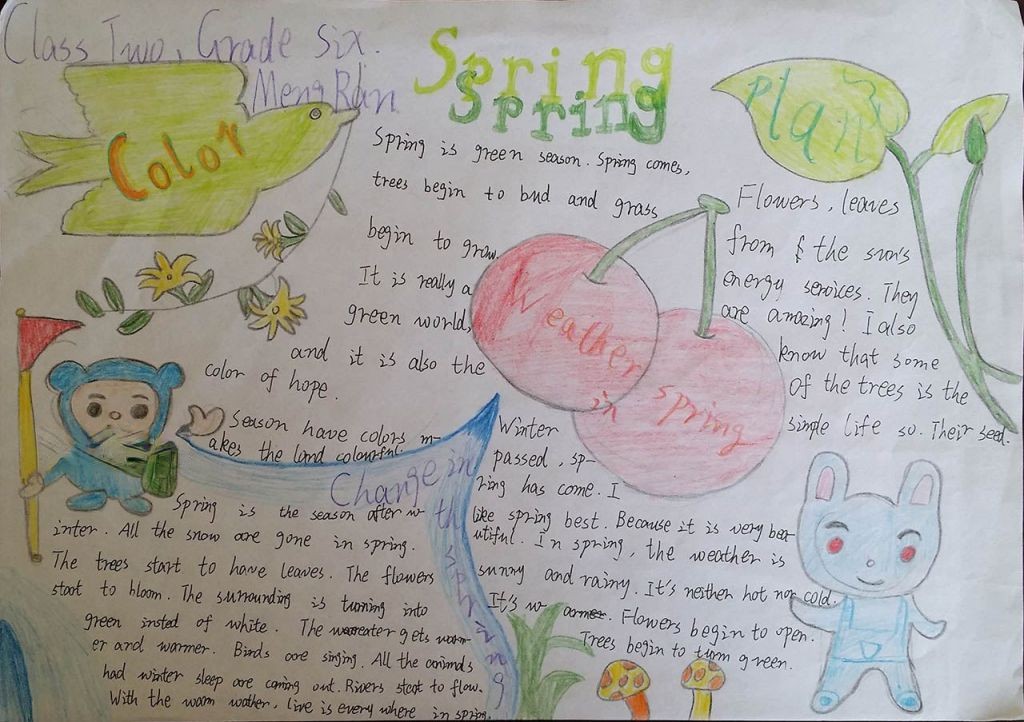 Class Two, Grade Six.
Meng Ran
Spring
Spring
Color
Spring is green season. Spring comes,
trees begin to bud and grass
begin to grow.
It is really a
green world,
and it is also the
color of hope.
Season have colors m-
akes the land colourful.
Plant
Flowers, leaves
from & the sun's
energy services. They
are amazing! I also
know that some
of the trees is the
simple life so. Their seed.
Weather
in
spring
Winter
passed, sp-
ring has come. I
like spring best. Because it is very bea-
utiful. In spring, the weather is
sunny and rainy. It's neither hot nor cold.
It's w- Flowers begin to open.
Trees begin to turn green.
Change in
th
spring
Spring is the season after w-
inter. All the snow are gone in spring.
The trees start to have leaves. The flowers
start to bloom. The surrounding is turning into
green insted of white. The gets warm-
er and warmer. Birds are singing. All the animals
had winter sleep are coming out. Rivers start to flow.
With the warm wather, live is every where in spring.